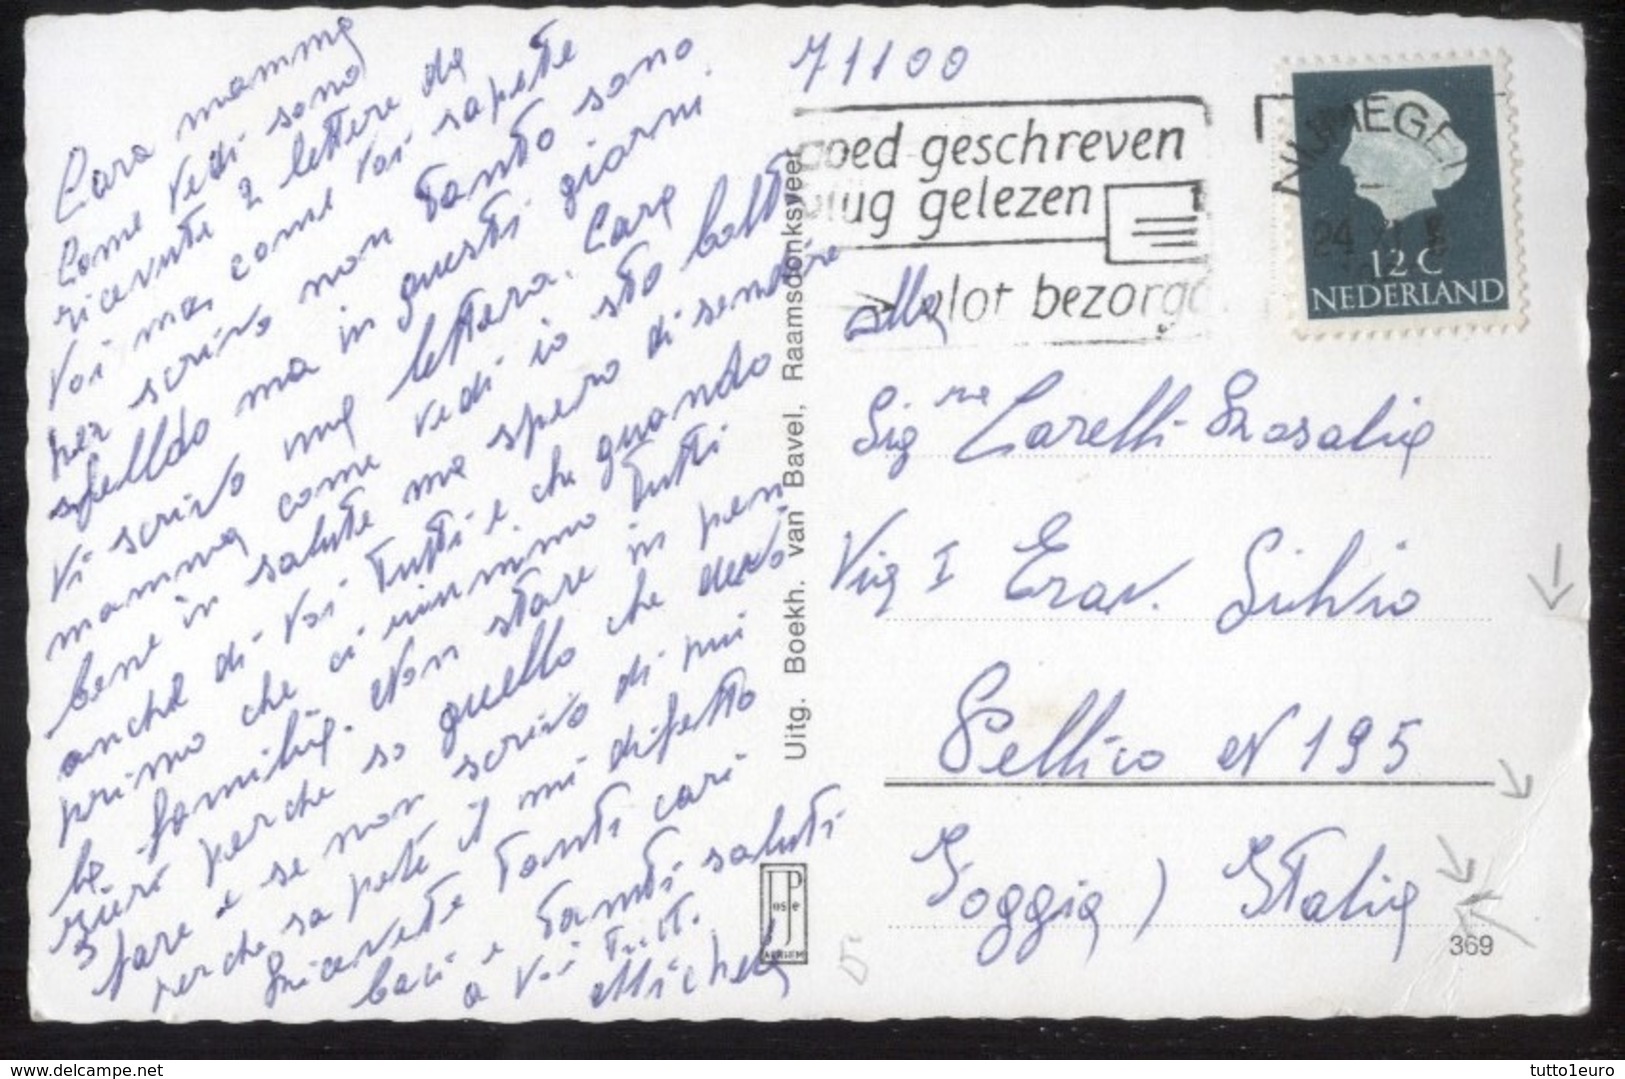 Cara mamma
Come vedi sono
ricevute 2 lettere da
voi ma come voi sapete
per scrivo non tanto sono
svelldo ma in questi giorni
vi scrivo una lettera. Cara
mamma come vedi io sto bette
bene in salute ma spero di sendire
anche di voi tutti e che quando
primo che ci riunimmo tutti
la familia. Non stare in pen
zieri perche so quello che devo
fare e se non scrivo di più
perche sa pete il mi difetto
Ricevete tanti cari
baci e tanti saluti
a voi tutt.
Michea
71100
goed geschreven
vlug gelezen
vlot bezorgd
NIJMEGEN
24
12 C
NEDERLAND
alla
Sig na Carelli Rosalia
Via I Trav. Silvio
Pellico N 195
Foggia ) Italia
369
5
Uitg. Boekh. van Bavel, Raamsdonksveer
JosPe
ARNHEM
tutto1euro